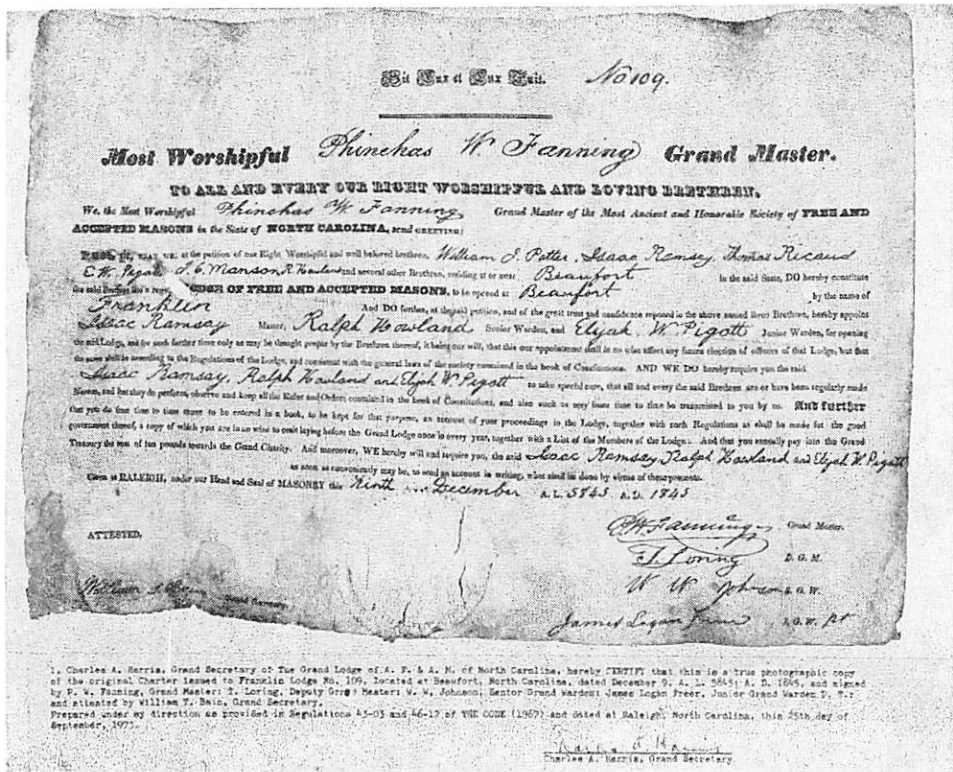 Sit Lux et Lux Fuit. No 109.
Most Worshipful Phinehas W. Fanning Grand Master.
TO ALL AND EVERY OUR RIGHT WORSHIPFUL AND LOVING BRETHREN,
We, the Most Worshipful Phinehas W. Fanning Grand Master of the Most Ancient and Honorable Society of FREE AND
ACCEPTED MASONS in the State of NORTH CAROLINA, send GREETING:
THAT WE, at the petition of our Right Worshipful and well beloved brethren, William J. Potter, Isaac Ramsey, Thomas Ricaud
E. W. Pigott, Manson, R. Howland and several other Brethren, residing at or near Beaufort in the said State, DO hereby constitute
the said Brethren into a regular ORDER OF FREE AND ACCEPTED MASONS, to be opened at Beaufort by the name of
Franklin And DO further, at the said petition, and of the great trust and confidence reposed in the above named Brethren, hereby appoint
Isaac Ramsay Master, Ralph Howland Senior Warden, and Elijah W. Pigott Junior Warden, for opening
the said Lodge, and for such further time only as may be thought proper by the Brethren thereof, it being our will, that this our appointment shall in no wise affect any future election of officers of that Lodge, but that
the same shall be according to the Regulations of the Lodge, and consistent with the general laws of the society contained in the book of Constitutions. AND WE DO hereby require you the said
Isaac Ramsay, Ralph Howland and Elijh W. Pigott to take special care, that all and every the said Brethren are or have been regularly made
Masons, and that they do perform, observe and keep all the Rules and Orders contained in the book of Constitutions, and also such as may from time to time be transmitted to you by us. And further
that you do from time to time cause to be entered in a book, to be kept for that purpose, an account of your proceedings in the Lodge, together with such Regulations as shall be made for the good
government thereof, a copy of which you are in no wise to omit laying before the Grand Lodge once in every year, together with a List of the Members of the Lodge. And that you annually pay into the Grand
Treasury the sum of ten pounds towards the Grand Charity. And moreover, WE hereby will and require you, the said Isaac Ramsay, Ralph Howland and Elijah W. Pigott
as soon as conveniently may be, to send an account in writing, what shall be done by virtue of these presents.
Given at RALEIGH, under our Hand and Seal of MASONRY this Ninth December A. L. 5845 A. D. 1845
ATTESTED,
P. W. Fanning Grand Master.
T. Loring D. G. M.
W W Johnson S. G. W.
William T. Bain Grand Secretary.
James Logan Freer J. G. W. pt
I, Charles A. Harris, Grand Secretary of The Grand Lodge of A. F. & A. M. of North Carolina, hereby CERTIFY that this is a true photographic copy
of the original Charter issued to Franklin Lodge No. 109, located at Beaufort, North Carolina; dated December 9, A. L. 5845; A. D. 1845, and signed
by P. W. Fanning, Grand Master; T. Loring, Deputy Grand Master; W. W. Johnson, Senior Grand Warden; James Logan Freer, Junior Grand Warden P. T.;
and attested by William T. Bain, Grand Secretary.
Prepared under my direction as provided in Regulations 43-03 and 46-17 of THE CODE (1967) and dated at Raleigh, North Carolina, this 25th day of
September, 1973.
Charles A. Harris
Charles A. Harris, Grand Secretary